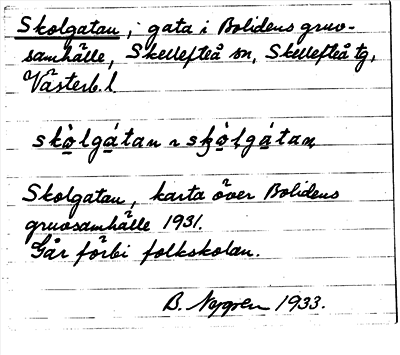 Skolgatan, gata i Bolidens gruv-
samhälle, Skellefteå sn, Skellefteå tg,
Västerb. l
skò̠lgá̠tan ~ skò̠lgá̠tan
Skolgatan, karta över Bolidens
gruvsamhälle 1931.
Går förbi folkskolan.
B. Nygren 1933.